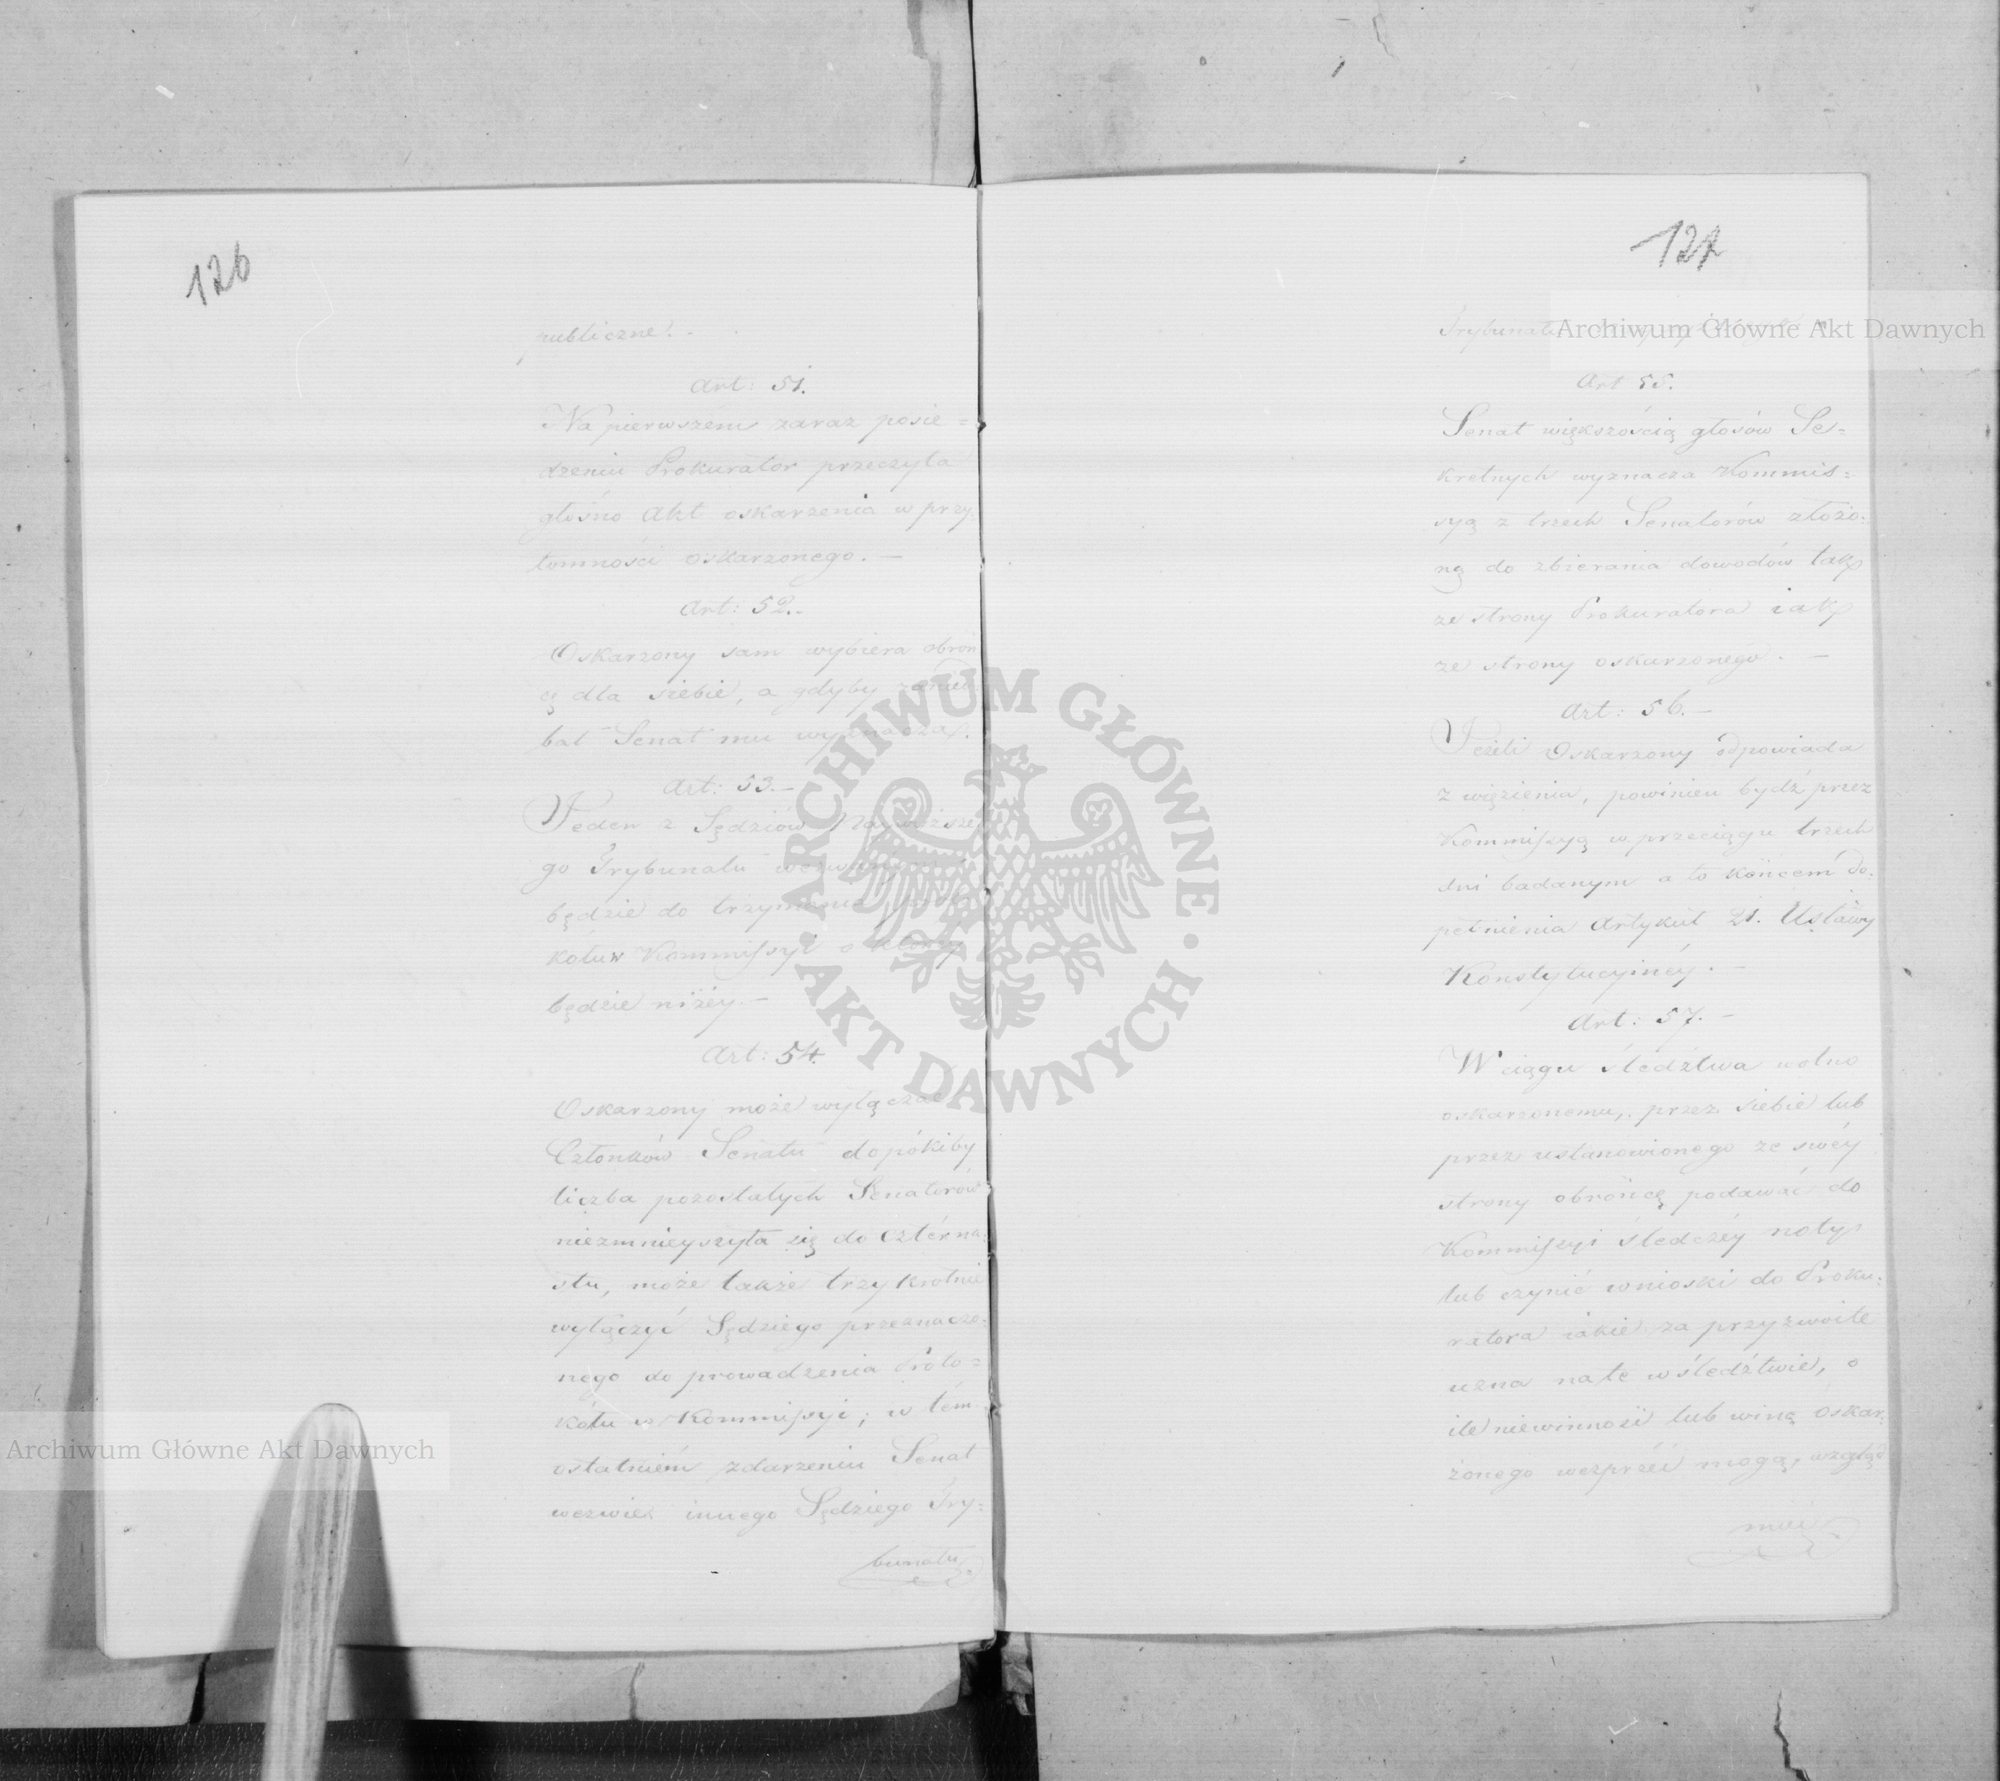 126
publiczne! -
Art: 51.
Na pierwszém zaraz posie=
dzeniu Prokurator przeczyta
głośno Akt oskarzenia w przy-
tomności oskarzonego. —
Art: 52.-
Oskarzony sam wybiera obroń
cę dla siebie, a gdyby zanied-
bał Senat mu wyznacza.
Art: 53.—
Jeden z Sędziów Naywyższe
go Trybunału wezwanym
będzie do trzymania
kółu w Kommissyi o którey
będzie niżéy.—
Art: 54.
Oskarzony może wyłączać
Członków Senatu dopókiby
liczba pozostałych Senatorów
niezmnieyszyła się do Cztérna-
stu, może także trzykrotnie
wyłączyć Sędziego przeznaczo-
nego do prowadzenia Proto=
kółu w Kommissyi; w tém
ostatniém zdarzeniu Senat
wezwie innego Sędziego Try-
bunału
127
Trybunału
Art 55.
Senat większością głosów Se=
kretnych wyznacza Kommis=
syą z trzech Senatorów złożo-
ną do zbierania dowodów tak
ze strony Prokuratora iak
ze strony oskarzonego. —
Art: 56.—
Jeżeli Oskarzony odpowiada
z więzienia, powinien bydź przez
Kommissyą w przeciągu trzech
dni badanym a to końcem do-
pełnienia Artykuł 21. Ustawy
Konstytucyinéy. —
Art: 57.—
W ciągu śledztwa wolno
oskarzonemu, przez siebie lub
przez ustanowionego ze swéy
strony obrońcę podawać do
Kommissyi śledczéy noty
lub czynić wnioski do Proku-
ratora iakie za przyzwoite
uzna na te w śledztwie, o
ile niewinność lub winę oskar-
żonego wesprzéć mogą, wzglę
Archiwum Główne Akt Dawnych
ARCHIWUM GŁÓWNE
AKT DAWNYCH
Archiwum Główne Akt Dawnych